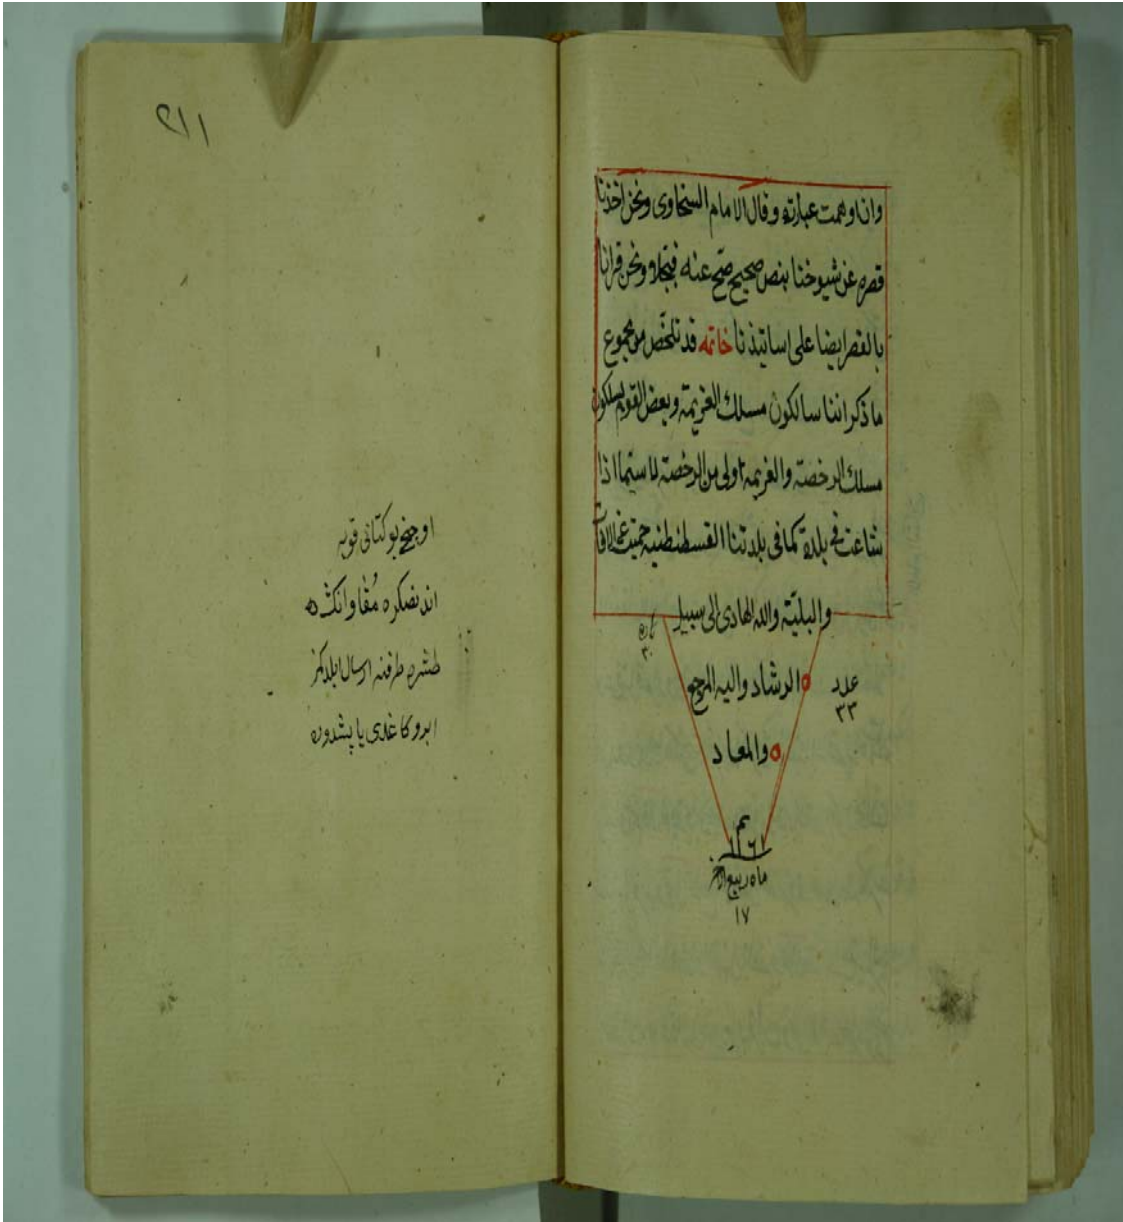 وان اوهمت عبارته وقال الامام السخاوى ونحن اخذنا
قصره عن شيوخنا بنص صحيح صح عنه فبجلا ونحن قرانا
بالقصر ايضا على اساتيذنا خاتمه قد تلخص من مجموع
ما ذكر اننا سالكون مسلك العزيمة وبعض القوم يسلكون
مسلك الرخصة والعزيمة اولى من الرخصة لا سيما اذا
شاعت فى بلدة كما فى بلدتنا القسطنطنيه حميت عن الافات
والبليّة والله الهادى الى سبيل
الرشاد واليه المرجع
والمعاد
عدد
٣٣
تم
١١٦١
ماه ربيع الاخر
١٧
٢١١
بو كتابى قويه
طشره طرفنه ارسال ايلدكمز
ابرو كاغدى